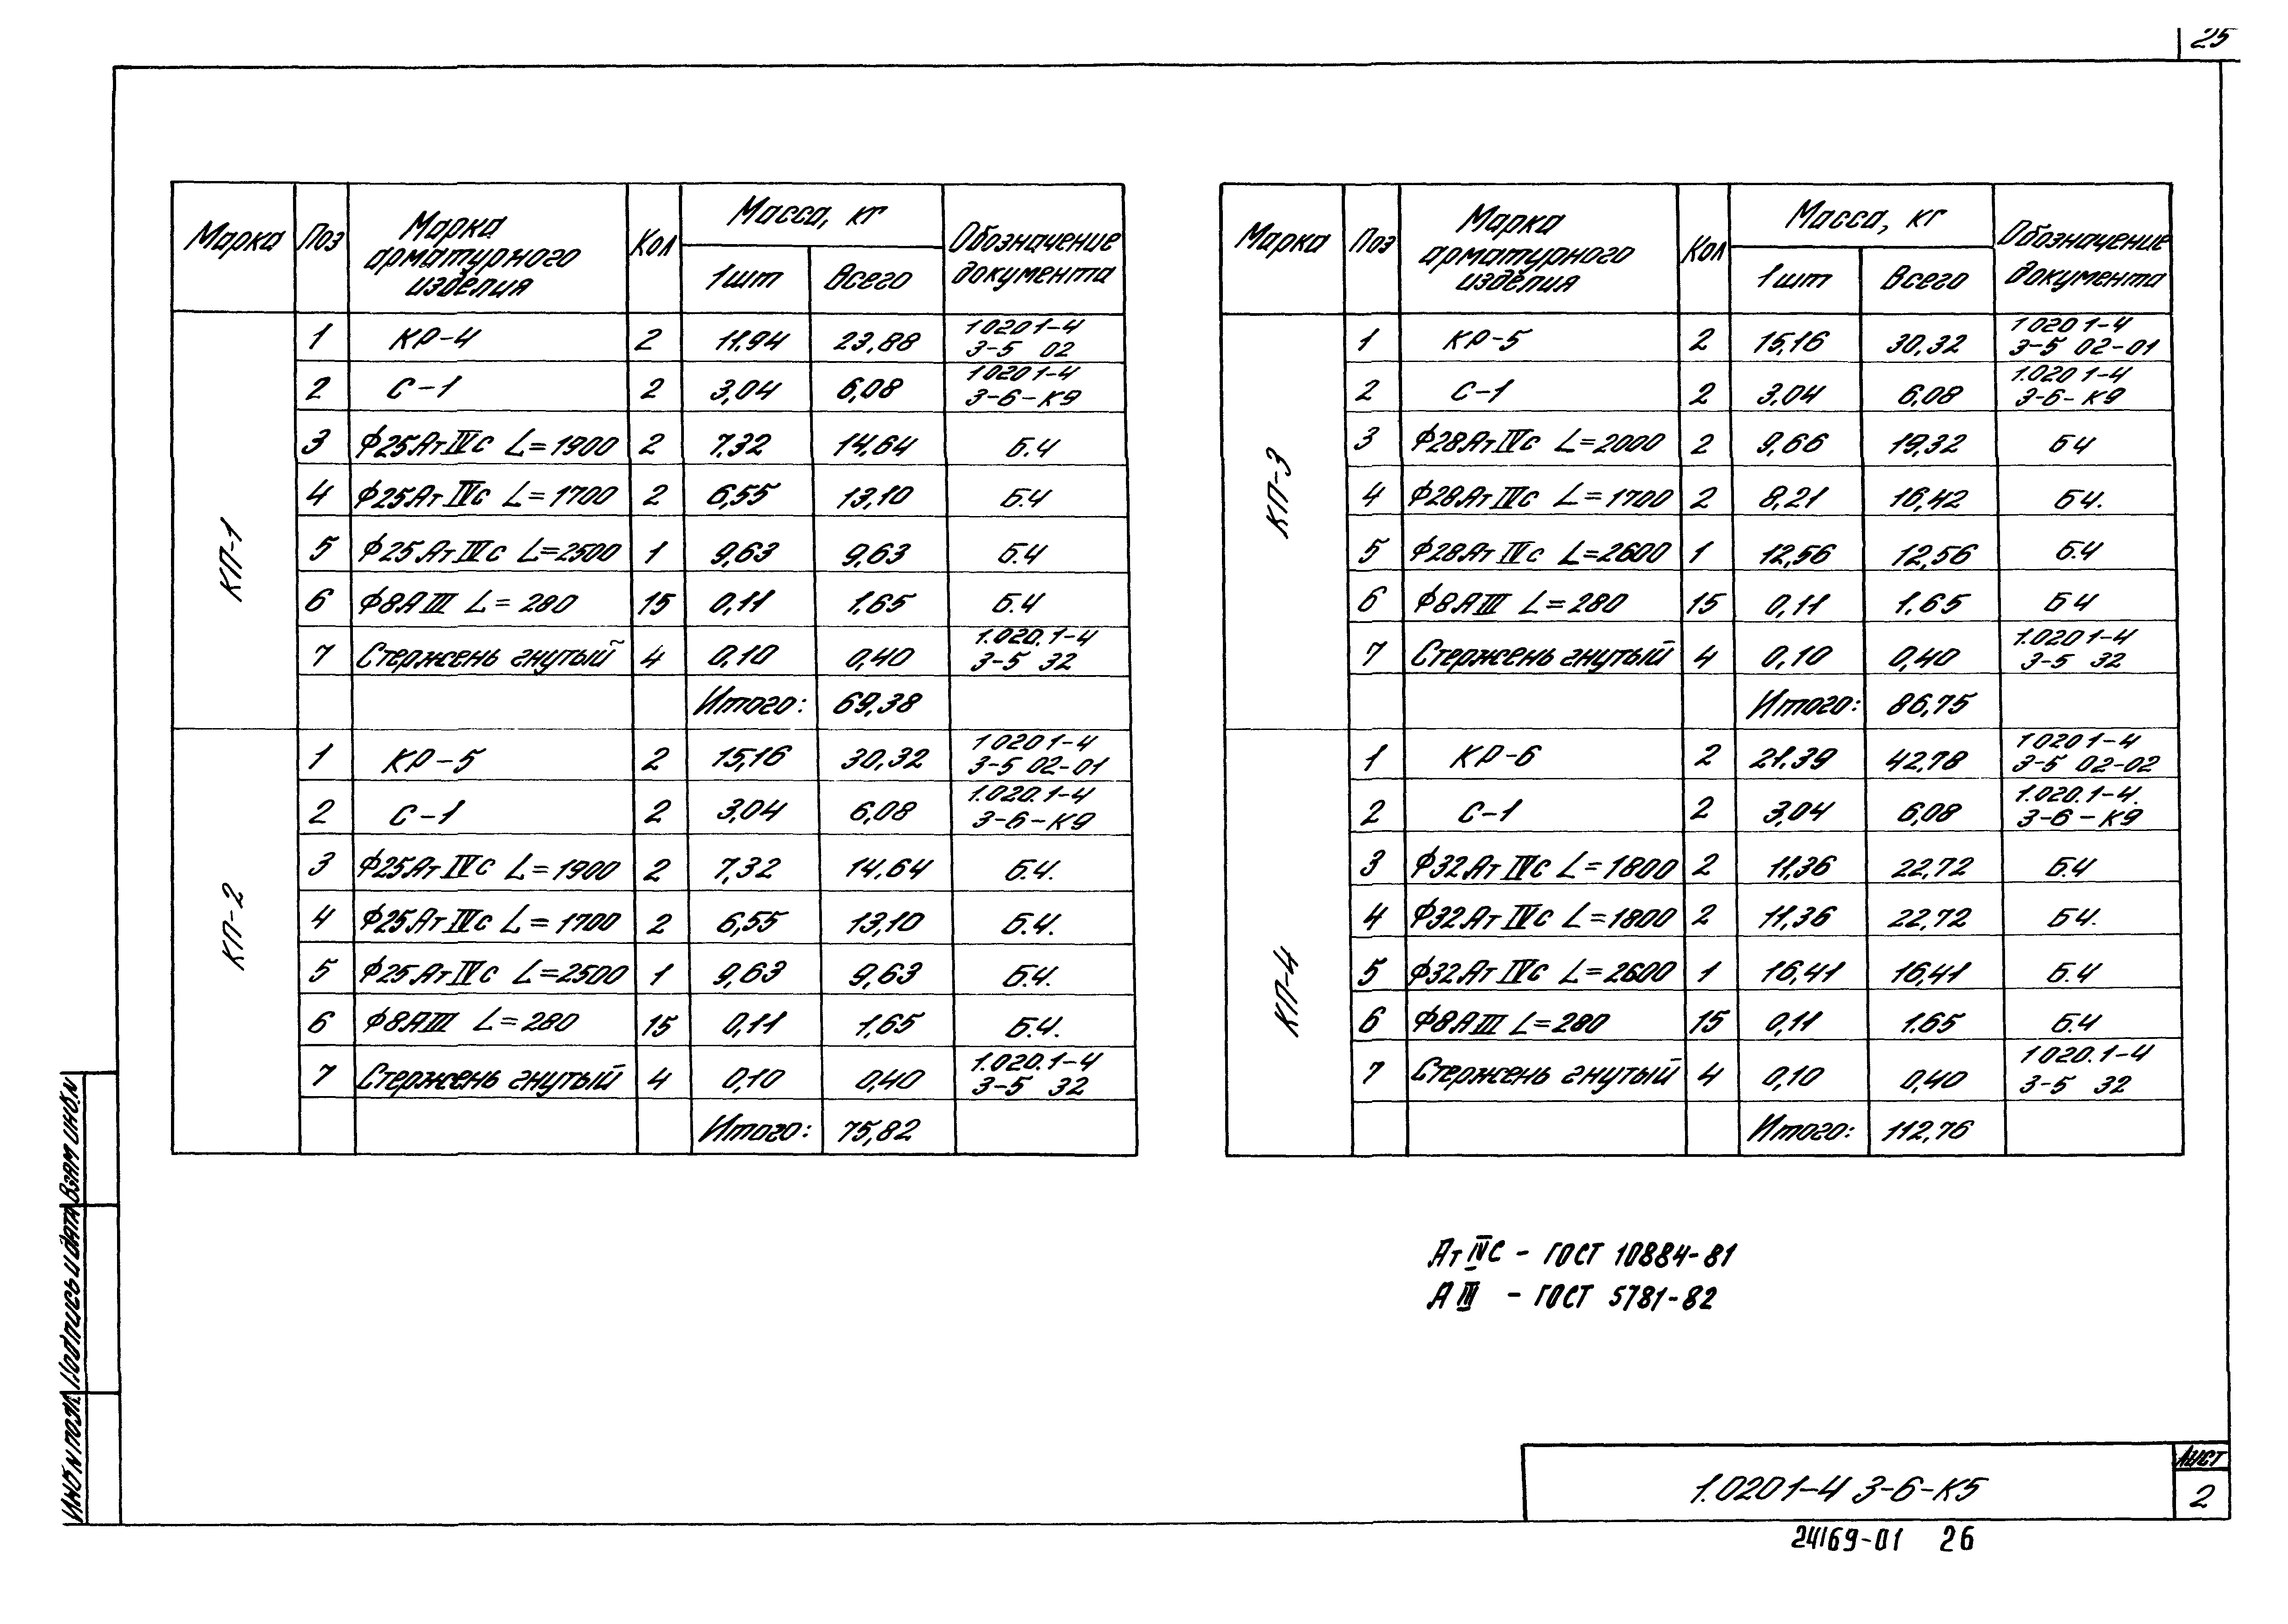 25
Марка Поз Марка арматурного изделия Кол Масса, кг 1шт Всего Обозначение документа
КП-1
1 КР-4 2 11,94 23,88 1 020 1-4 3-5 02
2 С-1 2 3,04 6,08 1 020 1-4 3-6-К9
3 ф25АтIVс L=1900 2 7,32 14,64 Б.Ч
4 ф25АтIVс L=1700 2 6,55 13,10 Б.Ч
5 ф25АтIVс L=2500 1 9,63 9,63 Б.Ч
6 ф8АIII L=280 15 0,11 1,65 Б.Ч
7 Стержень гнутый 4 0,10 0,40 1.020.1-4 3-5 32
Итого: 69,38
КП-2
1 КР-5 2 15,16 30,32 1 020 1-4 3-5 02-01
2 С-1 2 3,04 6,08 1.020.1-4 3-6-К9
3 ф25АтIVс L=1900 2 7,32 14,64 Б.Ч.
4 ф25АтIVс L=1700 2 6,55 13,10 Б.Ч.
5 ф25АтIVс L=2500 1 9,63 9,63 Б.Ч.
6 ф8АIII L=280 15 0,11 1,65 Б.Ч.
7 Стержень гнутый 4 0,10 0,40 1.020.1-4 3-5 32
Итого: 75,82
Марка Поз Марка арматурного изделия Кол Масса, кг 1шт Всего Обозначение документа
КП-3
1 КР-5 2 15,16 30,32 1 020 1-4 3-5 02-01
2 С-1 2 3,04 6,08 1.020 1-4 3-6-К9
3 ф28АтIVс L=2000 2 9,66 19,32 Б Ч
4 ф28АтIVс L=1700 2 8,21 16,42 Б Ч.
5 ф28АтIVс L=2600 1 12,56 12,56 Б.Ч
6 ф8АIII L=280 15 0,11 1,65 Б Ч
7 Стержень гнутый 4 0,10 0,40 1.020 1-4 3-5 32
Итого: 86,75
КП-4
1 КР-6 2 21.39 42,78 1 020 1-4 3-5 02-02
2 С-1 2 3,04 6,08 1.020.1-4. 3-6-К9
3 ф32АтIVс L=1800 2 11,36 22,72 Б.Ч
4 ф32АтIVс L=1800 2 11,36 22,72 Б Ч.
5 ф32АтIVс L=2600 1 16,41 16,41 Б.Ч
6 ф8АIII L=280 15 0,11 1.65 Б.Ч
7 Стержень гнутый 4 0,10 0,40 1 020.1-4 3-5 32
Итого: 112,76
АтIVС - ГОСТ 10884-81
АIII - ГОСТ 5781-82
ИНВ N ПОДЛ. Подпись и дата ВЗАМ ИНВ.N
1.020 1-4 3-6-К5
Лист
2
24169-01 26